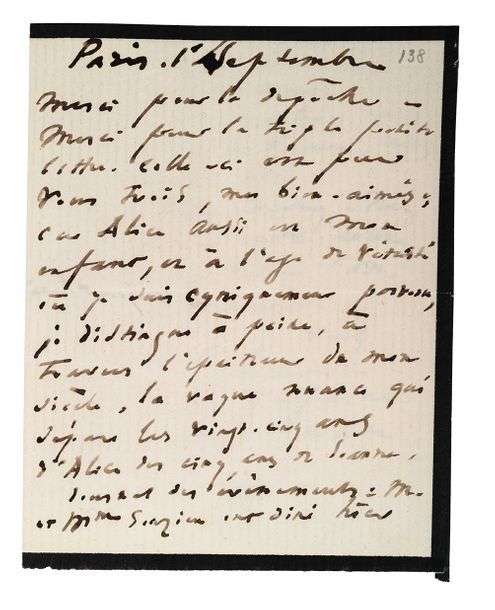 Paris. 1er Septembre
138
Merci pour la dépêche –
Merci pour la triple petite
lettre. Celle-ci est pour
vous trois, mes bien-aimés;
car Alice aussi est mon
enfant, et à l'âge de vétusté
où je suis cyniquement parvenu,
je distingue à peine, à
travers l'épaisseur de mon
siècle, la vague nuance qui
sépare les vingt-cinq ans
d'Alice des cinq ans de Jeanne.
Journal des événements: M.
et Mme ont dîné hier